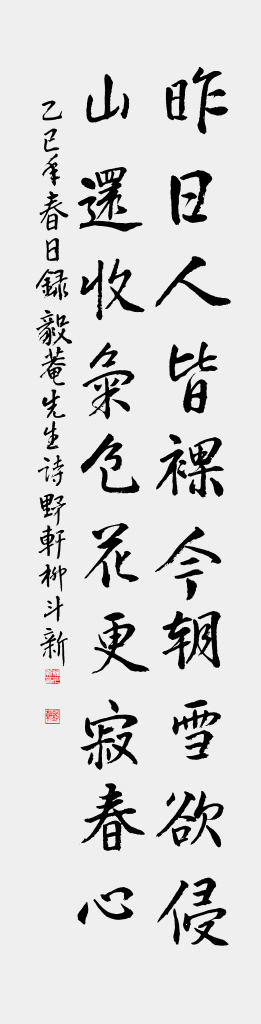 昨日人皆裸今朝雪欲侵
山還收氣色花更寂春心
乙巳年春日錄毅菴先生詩野軒柳斗新